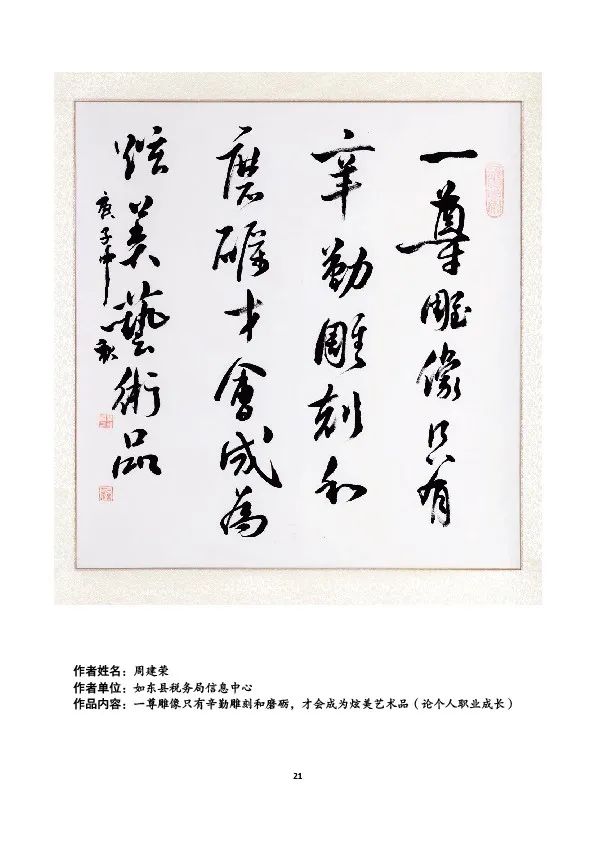 一尊雕像只有
辛勤雕刻和
磨礪才會成為
炫美藝術品
庚子中秋
作者姓名：周建荣
作者单位：如东县税务局信息中心
作品内容：一尊雕像只有辛勤雕刻和磨砺，才会成为炫美艺术品（论个人职业成长）
21